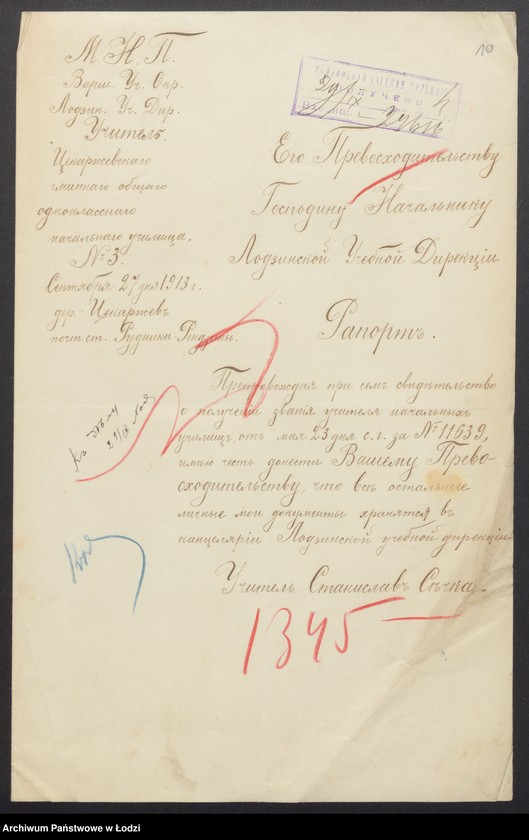 10
М. Н. П.
Варш. Уч. Окр.
Лодзин. Уч. Дир.
Учитель
Цекаржевскаго
гминнаго общаго
однокласснаго
начальнаго училища.
№ 3.
Сентября 27 дня 1913 г.
дер. Цекаржевъ
почт. ст. Рудники
ПОЛУЧЕНО
Его Превосходительству
Господину Начальнику
Лодзинской Учебной Дирекціи
Рапортъ.
Препровождая при семъ свидѣтельство
о полученіи званія учителя начальныхъ
училищъ, отъ мая 23 дня с. г. за № 11639,
имѣю честь донести Вашему Прево-
сходительству, что всѣ остальные
личные мои документы хранятся въ
канцеляріи Лодзинской учебной дирекціи
Учитель Станиславъ Сѣчка.
1345
Archiwum Państwowe w Łodzi